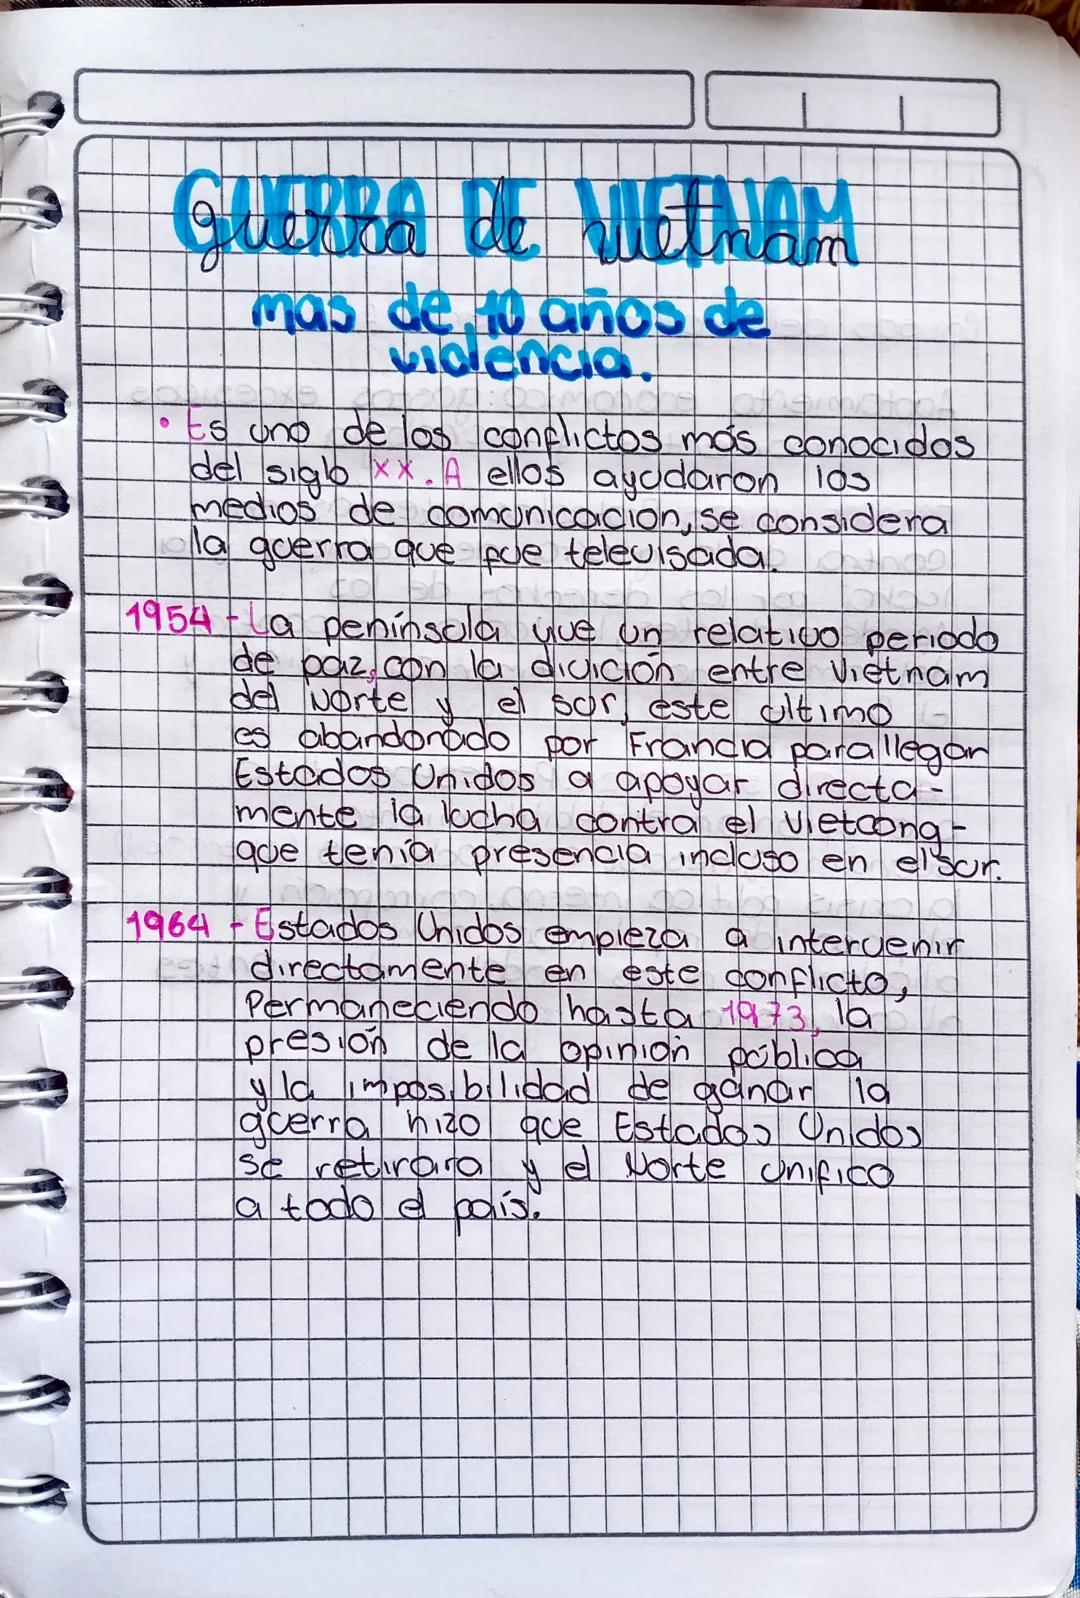 guerra de vietnam
mas de 10 años de
violencia.
• Es uno de los conflictos más conocidos
del siglo xx. A ellos ayudaron los
medios de comunicacion, se considera
la guerra que fue televisada.
1954 - La península vive un relativo periodo
de paz, con la divición entre Vietnam
del Norte y el sur, este ultimo
es abandonado por Francia para llegar
Estados Unidos a apoyar directa-
mente la lucha contra el Vietcong-
que tenía presencia incluso en el sur.
1964 - Estados Unidos empieza a intervenir
directamente en este conflicto,
Permaneciendo hasta 1973, la
presión de la opinión pública
y la imposibilidad de ganar la
guerra hizo que Estados Unidos
se retirara y el Norte unifico
a todo el país.